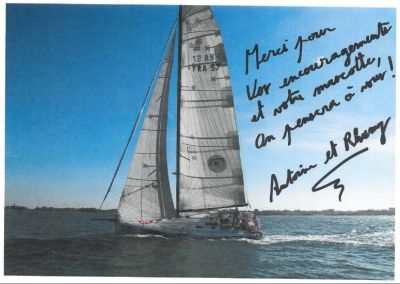 Merci pour
Vos encouragements
et votre mascotte,
on pensera à vous!
Antoine et Rhony